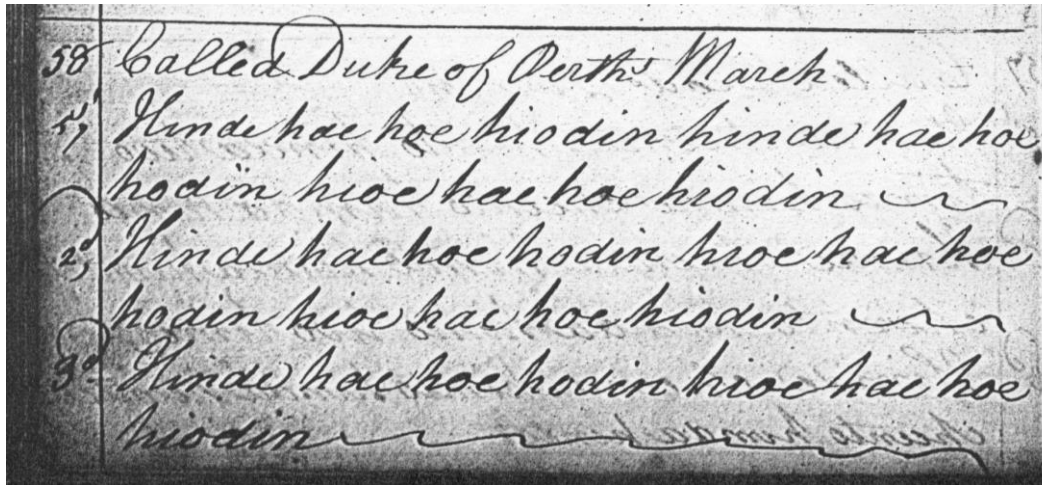 58 Called Duke of Perths March
1, Hinde hae hoe hiodin hinde hae hoe
hodin hioe hae hoe hiodin
2d, Hinde hae hoe hodin hioe hae hoe
hodin hioe hae hoe hiodin
3d Hinde hae hoe hodin hioe hae hoe
hiodin